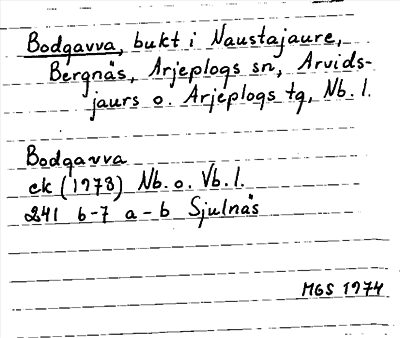 Bodgavva, bukt i Naustajaure,
Bergnäs, Arjeplogs sn, Arvids-
jaurs o. Arjeplogs tg, Nb. l.
Bodgavva
ek (1973) Nb. o. Vb. l.
241 6-7 a-b Sjulnäs
MGS 1974